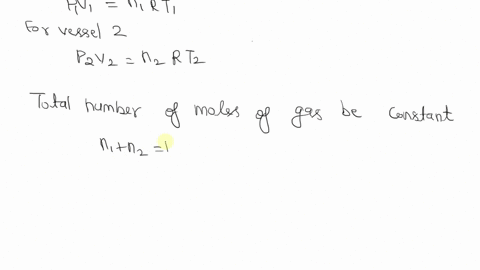 P₁V₁ = n₁RT₁
For vessel 2
P₂V₂ = n₂ RT₂
Total number of moles of gas be constant
n₁+n₂ =